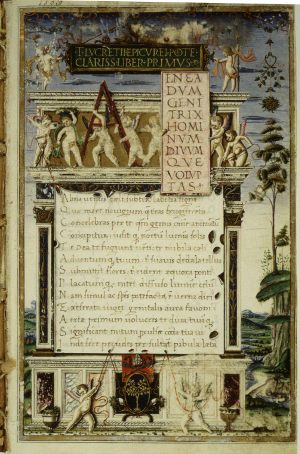 T·LVCRETII EPICVREI POETE
CLARISS·LIBER·PRIMVS
A
ENEA
DVM
GENI
TRIX
HOMI
NVM
DIVVM
QVE
VOLVP
TAS
Alma uenus celi subter labentia signa
Que mare nauigerum que terras
Concelebras per te genus
Concipitur lumina solis
Te dea te fugiunt uenti te nubila celi
Aduentumq; tuum tibi suauis dedala tellus
Submittit flores tibi rident equora ponti
Placatumq; nitet diffuso lumine celum
Nam simul ac species patefacta est uerna diei
Et reserata uiget genitalis aura fauoni
Aerie primum uolucres te diua tuumq;
Significant initum perculse corda tua ui
Inde fere pecudes persultant pabula leta